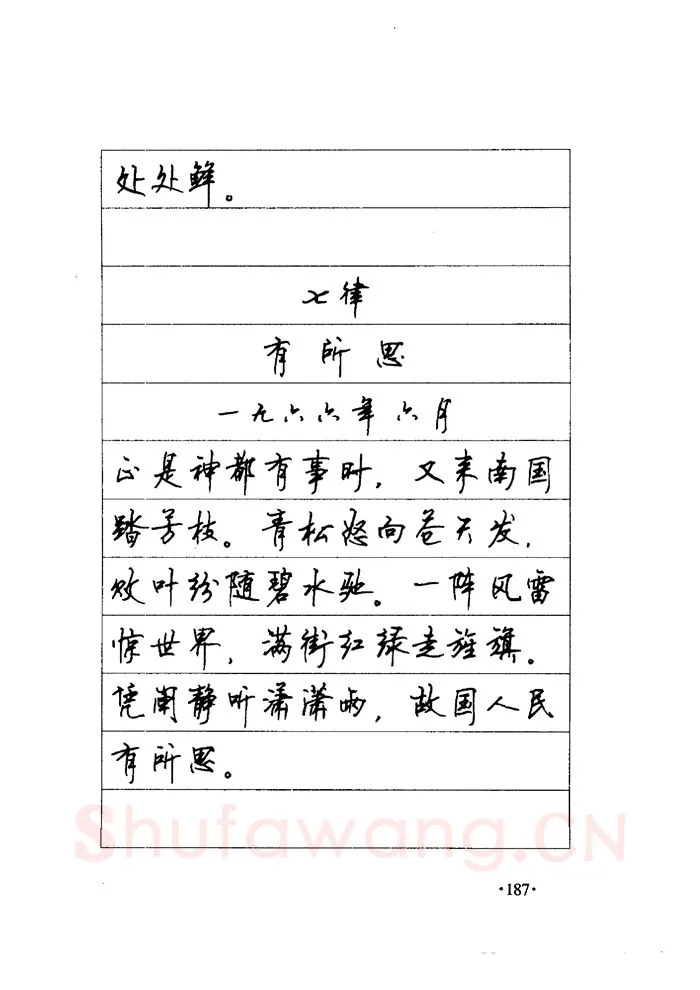 处处鲜。
七律
有所思
一九六六年六月
正是神都有事时，又来南国
踏芳枝。青松怒向苍天发，
败叶纷随碧水驰。一阵风雷
惊世界，满街红绿走旌旗。
凭阑静听潇潇雨，故国人民
有所思。
Shufawang.CN
·187·